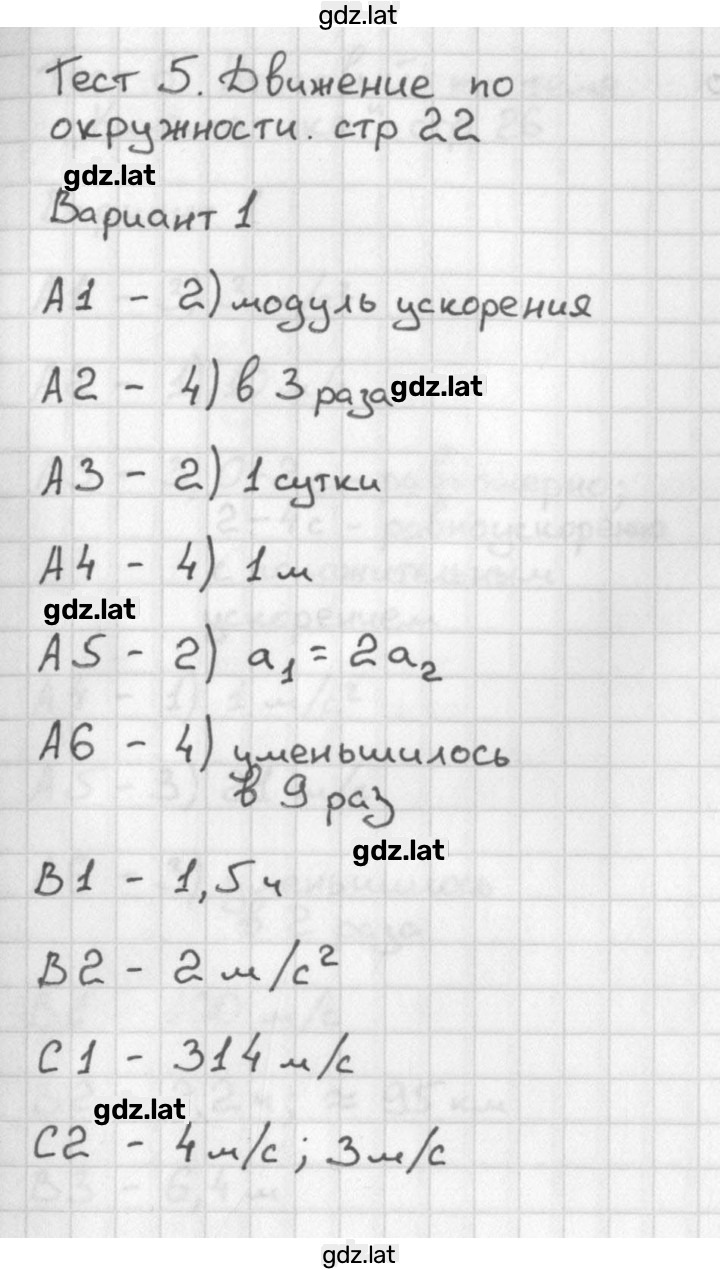 gdz.lat
Тест 5. Движение по
окружности. стр 22
gdz.lat
Вариант 1
А1 - 2) модуль ускорения
А2 - 4) в 3 раза gdz.lat
А3 - 2) 1 сутки
А4 - 4) 1 м
gdz.lat
А5 - 2) a₁ = 2a₂
А6 - 4) уменьшилось
в 9 раз
gdz.lat
В1 - 1,5 ч
В2 - 2 м/с²
С1 - 314 м/с
gdz.lat
С2 - 4 м/с ; 3 м/с
gdz.lat